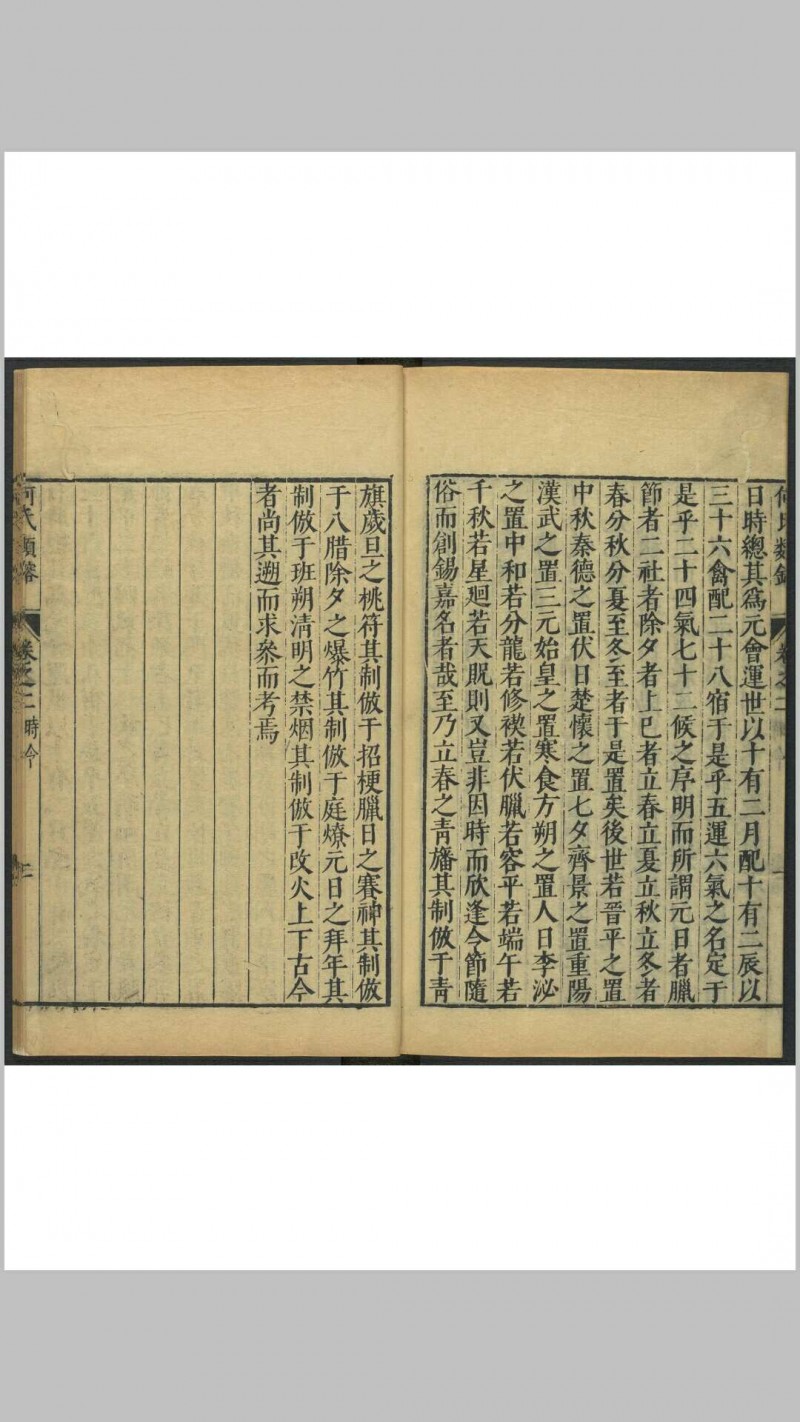 日時總其爲元會運世以十有二月配十有二辰以
三十六禽配二十八宿于是乎五運六氣之名定于
是乎二十四氣七十二候之序明而所謂元日者臘
節者二社者除夕者上巳者立春立夏立秋立冬者
春分秋分夏至冬至者于是置矣後世若晉平之置
中秋秦德之置伏日楚懷之置七夕齊景之置重陽
漢武之置三元始皇之置寒食方朔之置人日李泌
之置中和若分龍若修禊若伏臘若容平若端午若
千秋若星廻若天貺則又豈非因時而欣逢令節隨
俗而創錫嘉名者哉至乃立春之靑旛其制倣于靑
旗歲旦之桃符其制倣于招梗臘日之賽神其制倣
于八腊除夕之爆竹其制倣于庭燎元日之拜年其
制倣于班朔淸明之禁烟其制倣于改火上下古今
者尚其遡而求叅而考焉
何氏類鎔
卷之二 時令
三